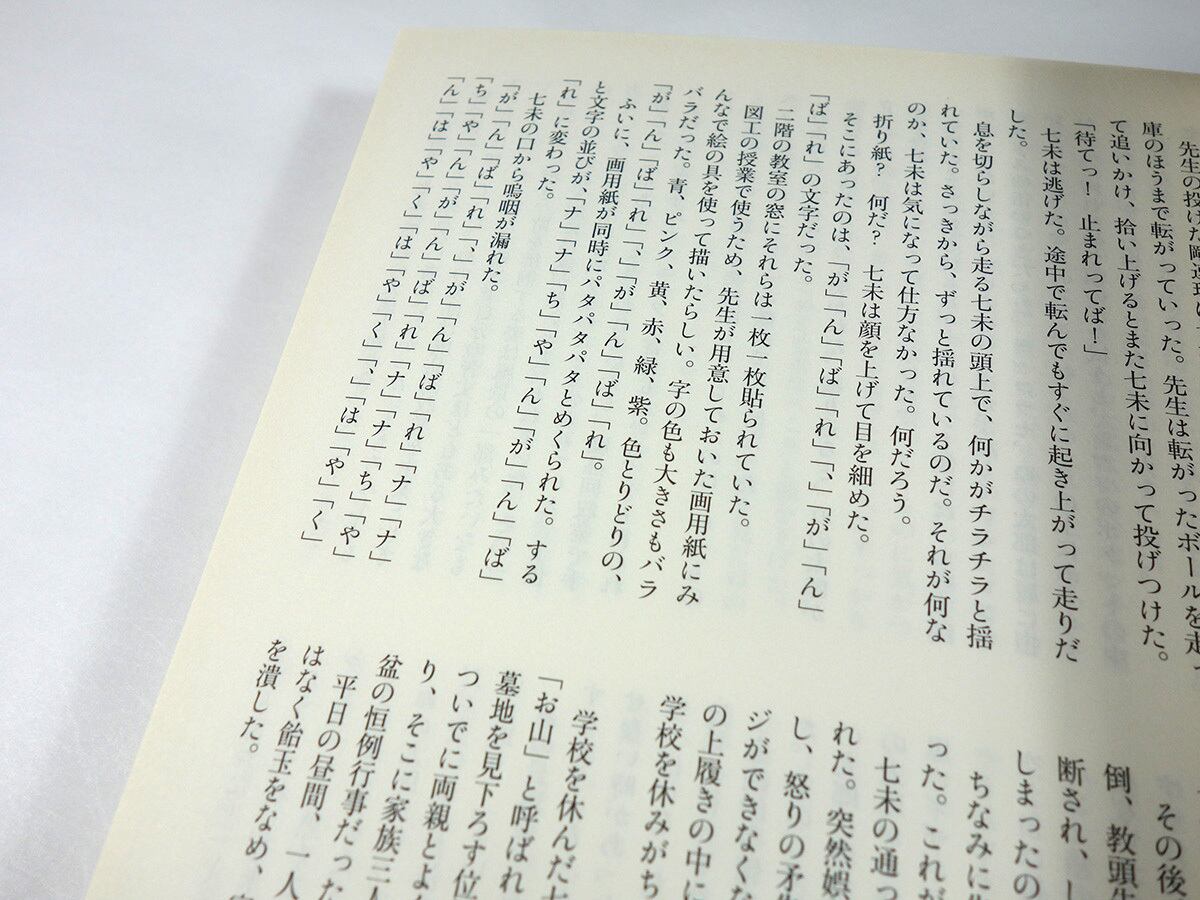 先生の投げた
庫のほうまで転がっていった。先生は転がったボールを走っ
て追いかけ、拾い上げるとまた七未に向かって投げつけた。
「待てっ! 止まれってば!」
七未は逃げた。途中で転んでもすぐに起き上がって走りだ
した。
息を切らしながら走る七未の頭上で、何かがチラチラと揺
れていた。さっきから、ずっと揺れているのだ。それが何な
のか、七未は気になって仕方なかった。何だろう。
折り紙? 何だ? 七未は顔を上げて目を細めた。
そこにあったのは、「が」「ん」「ば」「れ」、「が」「ん」
「ば」「れ」の文字だった。
二階の教室の窓にそれらは一枚一枚貼られていた。
図工の授業で使うため、先生が用意しておいた画用紙にみ
んなで絵の具を使って描いたらしい。字の色も大きさもバラ
バラだった。青、ピンク、黄、赤、緑、紫。色とりどりの、
「が」「ん」「ば」「れ」、「が」「ん」「ば」「れ」。
ふいに、画用紙が同時にパタパタとめくられた。する
と文字の並びが、「ナ」「ナ」「ち」「ゃ」「ん」「が」「ん」「ば」
「れ」に変わった。
七未の口から嗚咽が漏れた。
「が」「ん」「ば」「れ」、「が」「ん」「ば」「れ」「ナ」「ナ」
「ち」「ゃ」「ん」「が」「ん」「ば」「れ」「ナ」「ナ」「ち」「ゃ」
「ん」「は」「や」「く」「は」「や」「く」、「は」「や」「く」
その後
倒、教頭先
断され、し
しまったの
ちなみに
った。これが
七未の通っ
れた。突然娯
し、怒りの矛
ジができなくな
の上履きの中に
学校を休みがち
学校を休んだ
「お山」と呼ばれ
墓地を見下ろす位
ついでに両親とよ
り、そこに家族三人
盆の恒例行事だった
平日の昼間、一人
はなく飴玉をなめ、
を潰した。